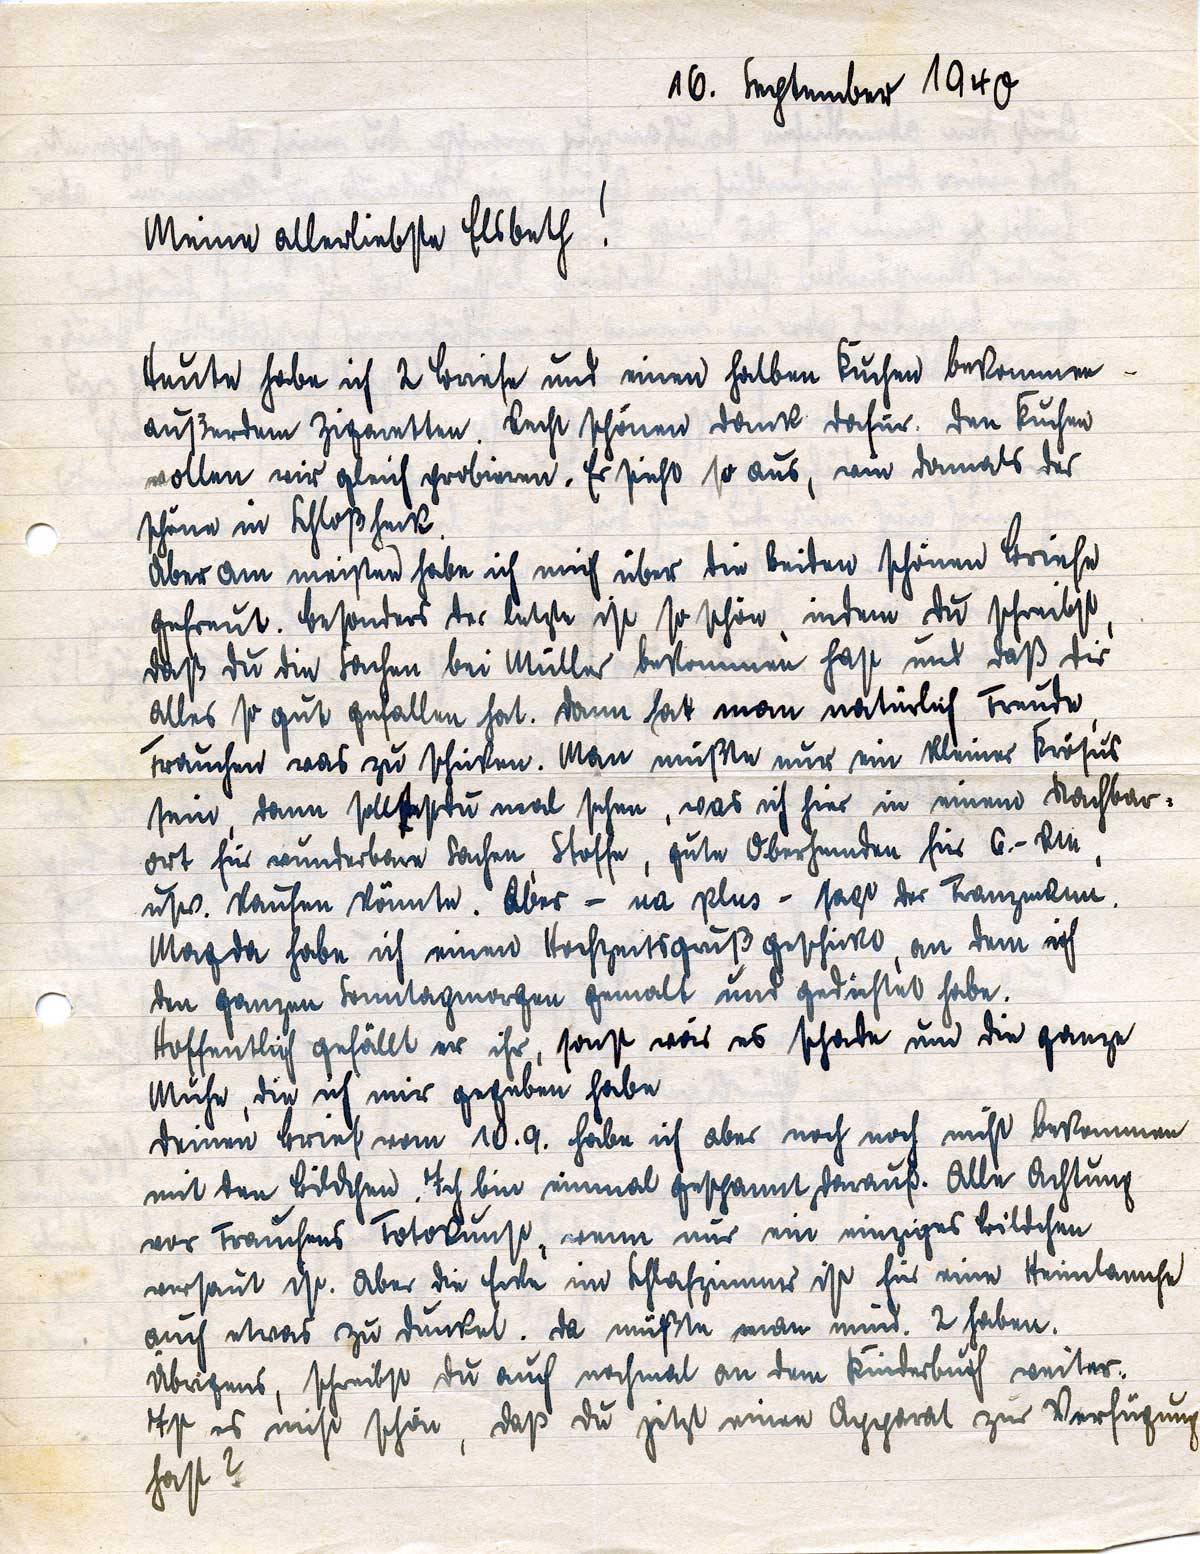 16. September 1940
Meine allerliebste Elsbeth!
Heute habe ich 2 Briefe und einen halben Kuchen bekommen -
außerdem Zigaretten. Recht schönen Dank dafür. Den Kuchen
wollen wir gleich probieren. Er sieht so aus, wie damals der
schöne in Schloßheck.
Aber am meisten habe ich mich über die beiden schönen Briefe
gefreut. Besonders der letzte ist so schön, indem Du schreibst,
daß Du die Sachen bei Müller bekommen hast und daß Dir
alles so gut gefallen hat. Dann hat man natürlich Freude,
Frauchen was zu schicken. Man müßte nur ein kleiner Krösus
sein, dann solltest Du mal sehen, was ich hier in einem Nachbar-
ort für wunderbare Sachen, Stoffe, gute Oberhemden für 6.- RM,
usw. kaufen könnte. Aber - na plus - sagt der Franzmann.
Magda habe ich einen Hochzeitsgruß geschickt, an dem ich
den ganzen Sonntagmorgen gemalt und gedichtet habe.
Hoffentlich gefällt er ihr, sonst wär es schade um die ganze
Mühe, die ich mir gegeben habe
Deinen Brief vom 10.9. habe ich aber noch noch nicht bekommen
mit den Bildchen. Ich bin einmal gespannt darauf. Alle Achtung
vor Frauchens Fotokunst, wenn nur ein einziges Bildchen
versaut ist. Aber die Ecke im Schlafzimmer ist für eine Heimlampe
auch etwas zu dunkel. Da müßte man mind. 2 haben.
Übrigens, schreibst Du auch nochmal an dem Kinderbuch weiter.
Ist es nicht schön, daß Du jetzt einen Apparat zur Verfügung
hast?